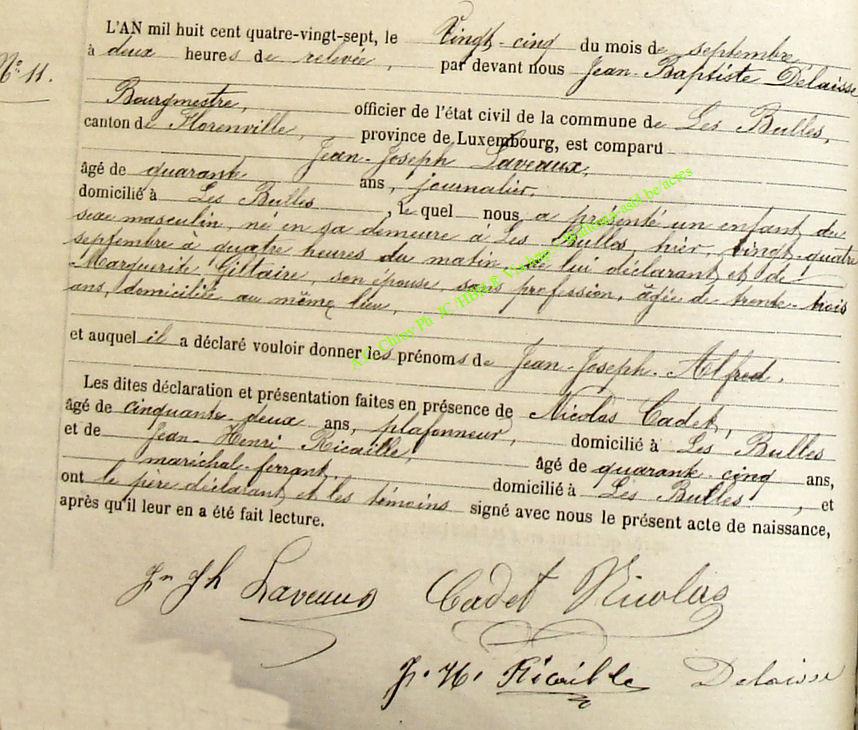 L'AN mil huit cent quatre-vingt-sept, le Vingt-cinq du mois de septembre,
N° 11.
à deux heures de relevée, par devant nous Jean-Baptiste Delaisse
Bourgmestre, officier de l'état civil de la commune de Les Bulles,
canton de Florenville, province de Luxembourg, est comparu
Jean-Joseph Laveaux,
âgé de quarante ans, journalier,
domicilié à Les Bulles, le quel nous a présenté un enfant du
sexe masculin, né en sa demeure à Les Bulles, hier, vingt-quatre
septembre à quatre heures du matin, de lui déclarant et de
Marguerite Giltaire, son épouse, sans profession, âgée de trente-trois
ans, domiciliée au même lieu,
et auquel il a déclaré vouloir donner les prénoms de Jean-Joseph-Alfred.
Les dites déclaration et présentation faites en présence de Nicolas Cadet,
âgé de cinquante-deux ans, plafonneur, domicilié à Les Bulles
et de Jean-Henri Ricaille, âgé de quarante-cinq ans,
maréchal-ferrant, domicilié à Les Bulles, et
ont le père déclarant et les témoins signé avec nous le présent acte de naissance,
après qu'il leur en a été fait lecture.
Jn Jh Laveaux Cadet Nicolas
J. H. Ricaille Delaisse